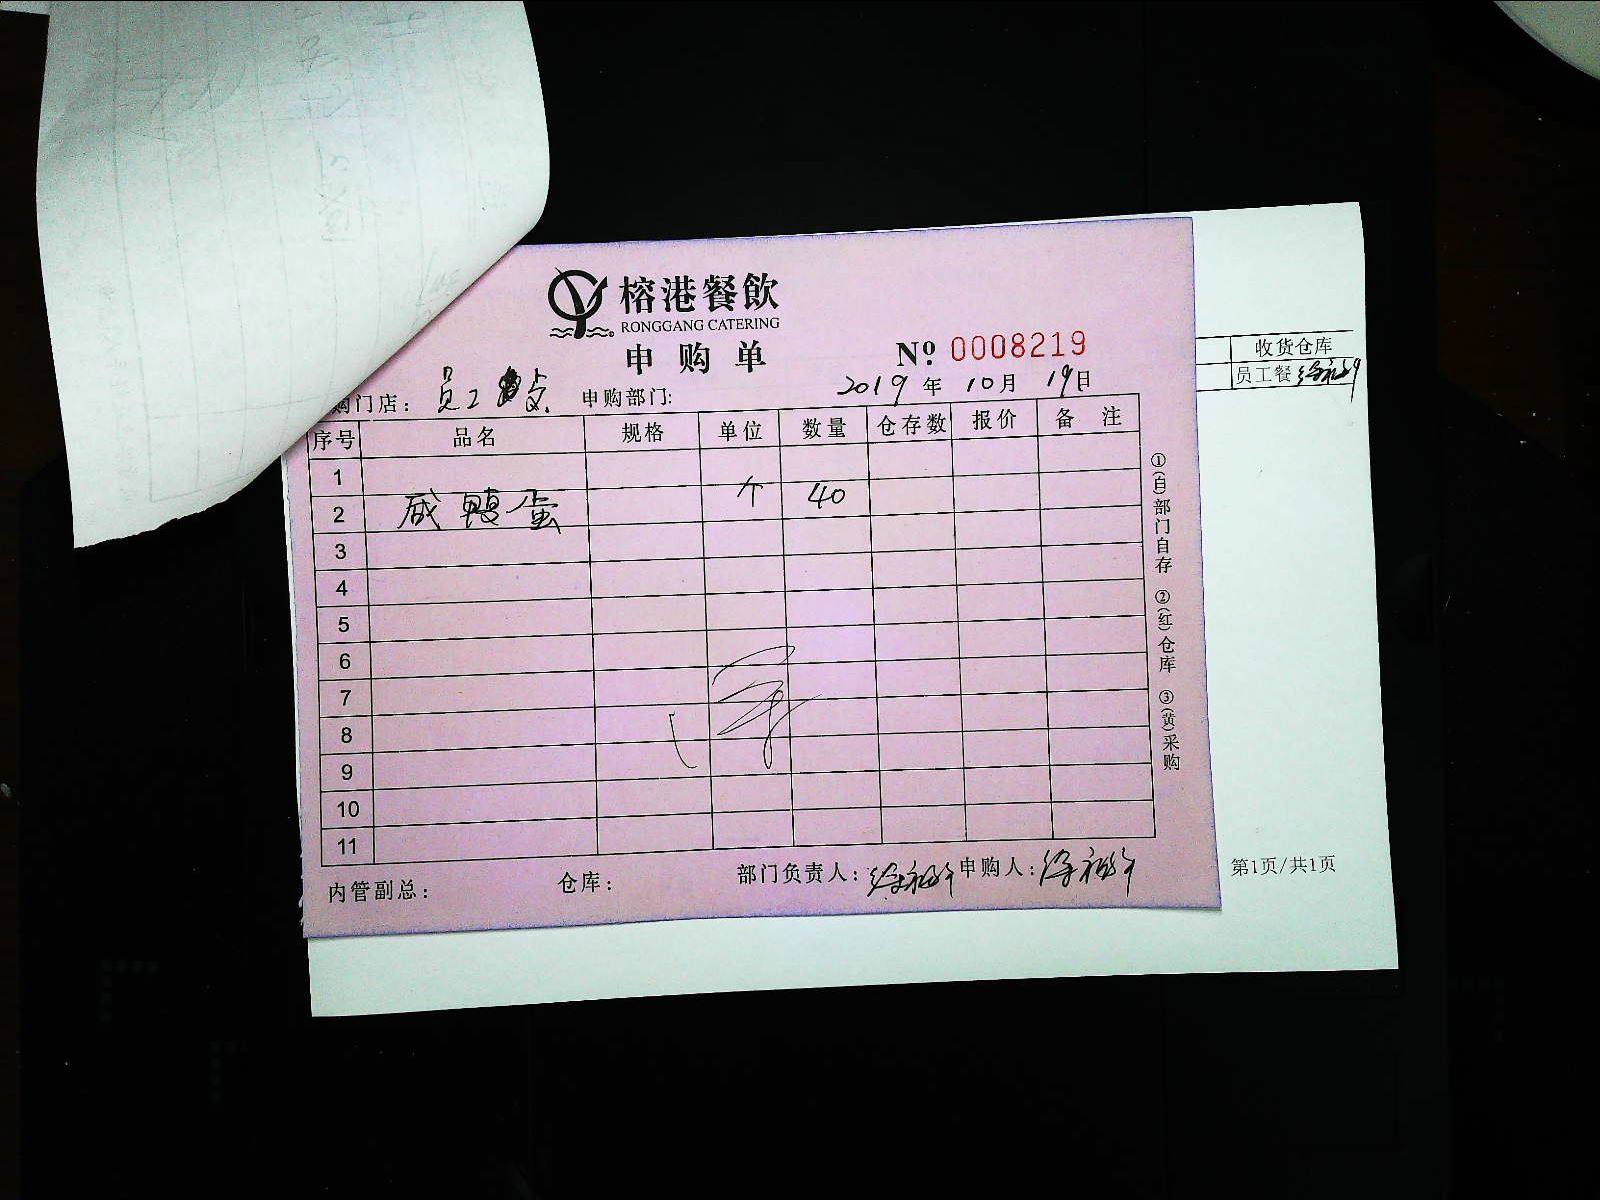 榕港餐飲
RONGGANG CATERING
申购单
№ 0008219
购门店： 员工 申购部门: 2019年 10月 19日
序号 品名 规格 单位 数量 仓存数 报价 备 注
1
2 咸鸭蛋 个 40
3
4
5
6
7
8
9
10
11
内管副总： 仓库： 部门负责人： 申购人：
①(白)部门自存 ②(红)仓库 ③(黄)采购
收货仓库
员工餐
第1页/共1页